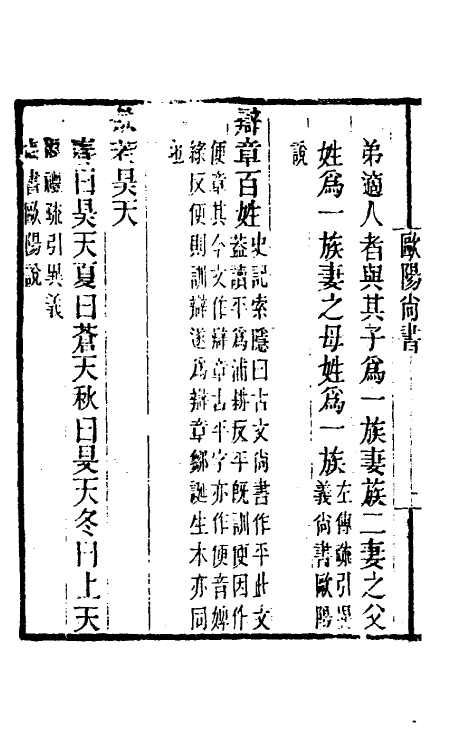 歐陽尚書
弟適人者與其子爲一族妻族二妻之父
姓爲一族妻之母姓爲一族左傳疏引異
義尚書歐陽
說
辯章百姓史記索隱曰古文尚書作平此文
蓋讀平爲浦耕反平旣訓便因作
便章其今文作辯章古平字亦作便音婢
緣反便則訓辯遂爲辯章鄒誕生本亦同
也
若昊天
春曰昊天夏曰蒼天秋曰旻天冬曰上天
禮疏引異義
書歐陽說